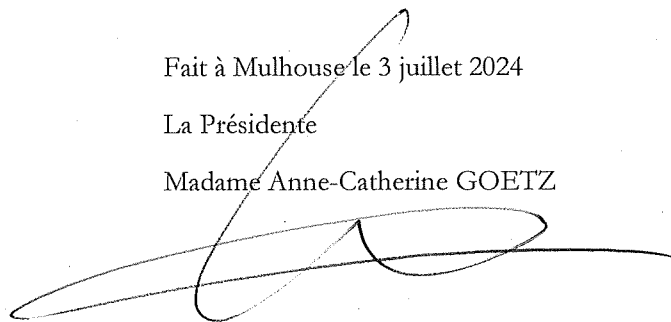 Fait à Mulhouse le 3 juillet 2024
La Présidente
Madame Anne-Catherine GOETZ